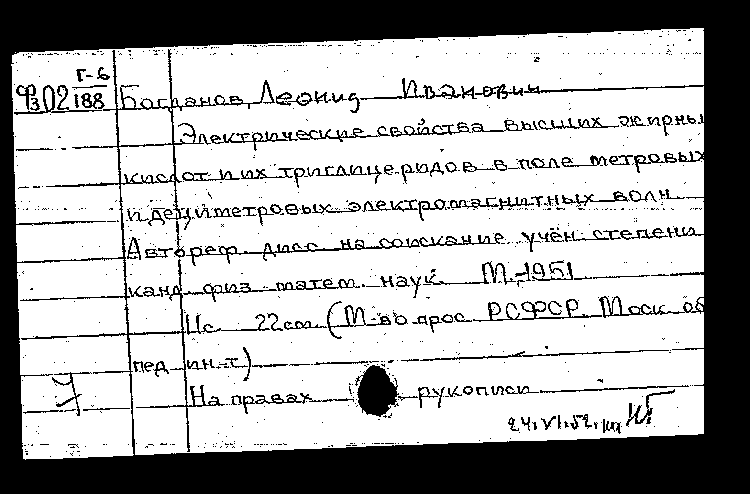 Г-6
Ф302 188 Богданов, Леонид Иванович
Электрические свойства высших жирны
кислот и их триглицеридов в поле метровых
и дециметровых электромагнитных волн.
Автореф. дисс. на соискание учён. степени
канд. физ. матем. наук. М.-1951
11с 22см. (М-во прос. РСФСР. Моск. об
пед. ин-т)
На правах рукописи
24.VI.52.